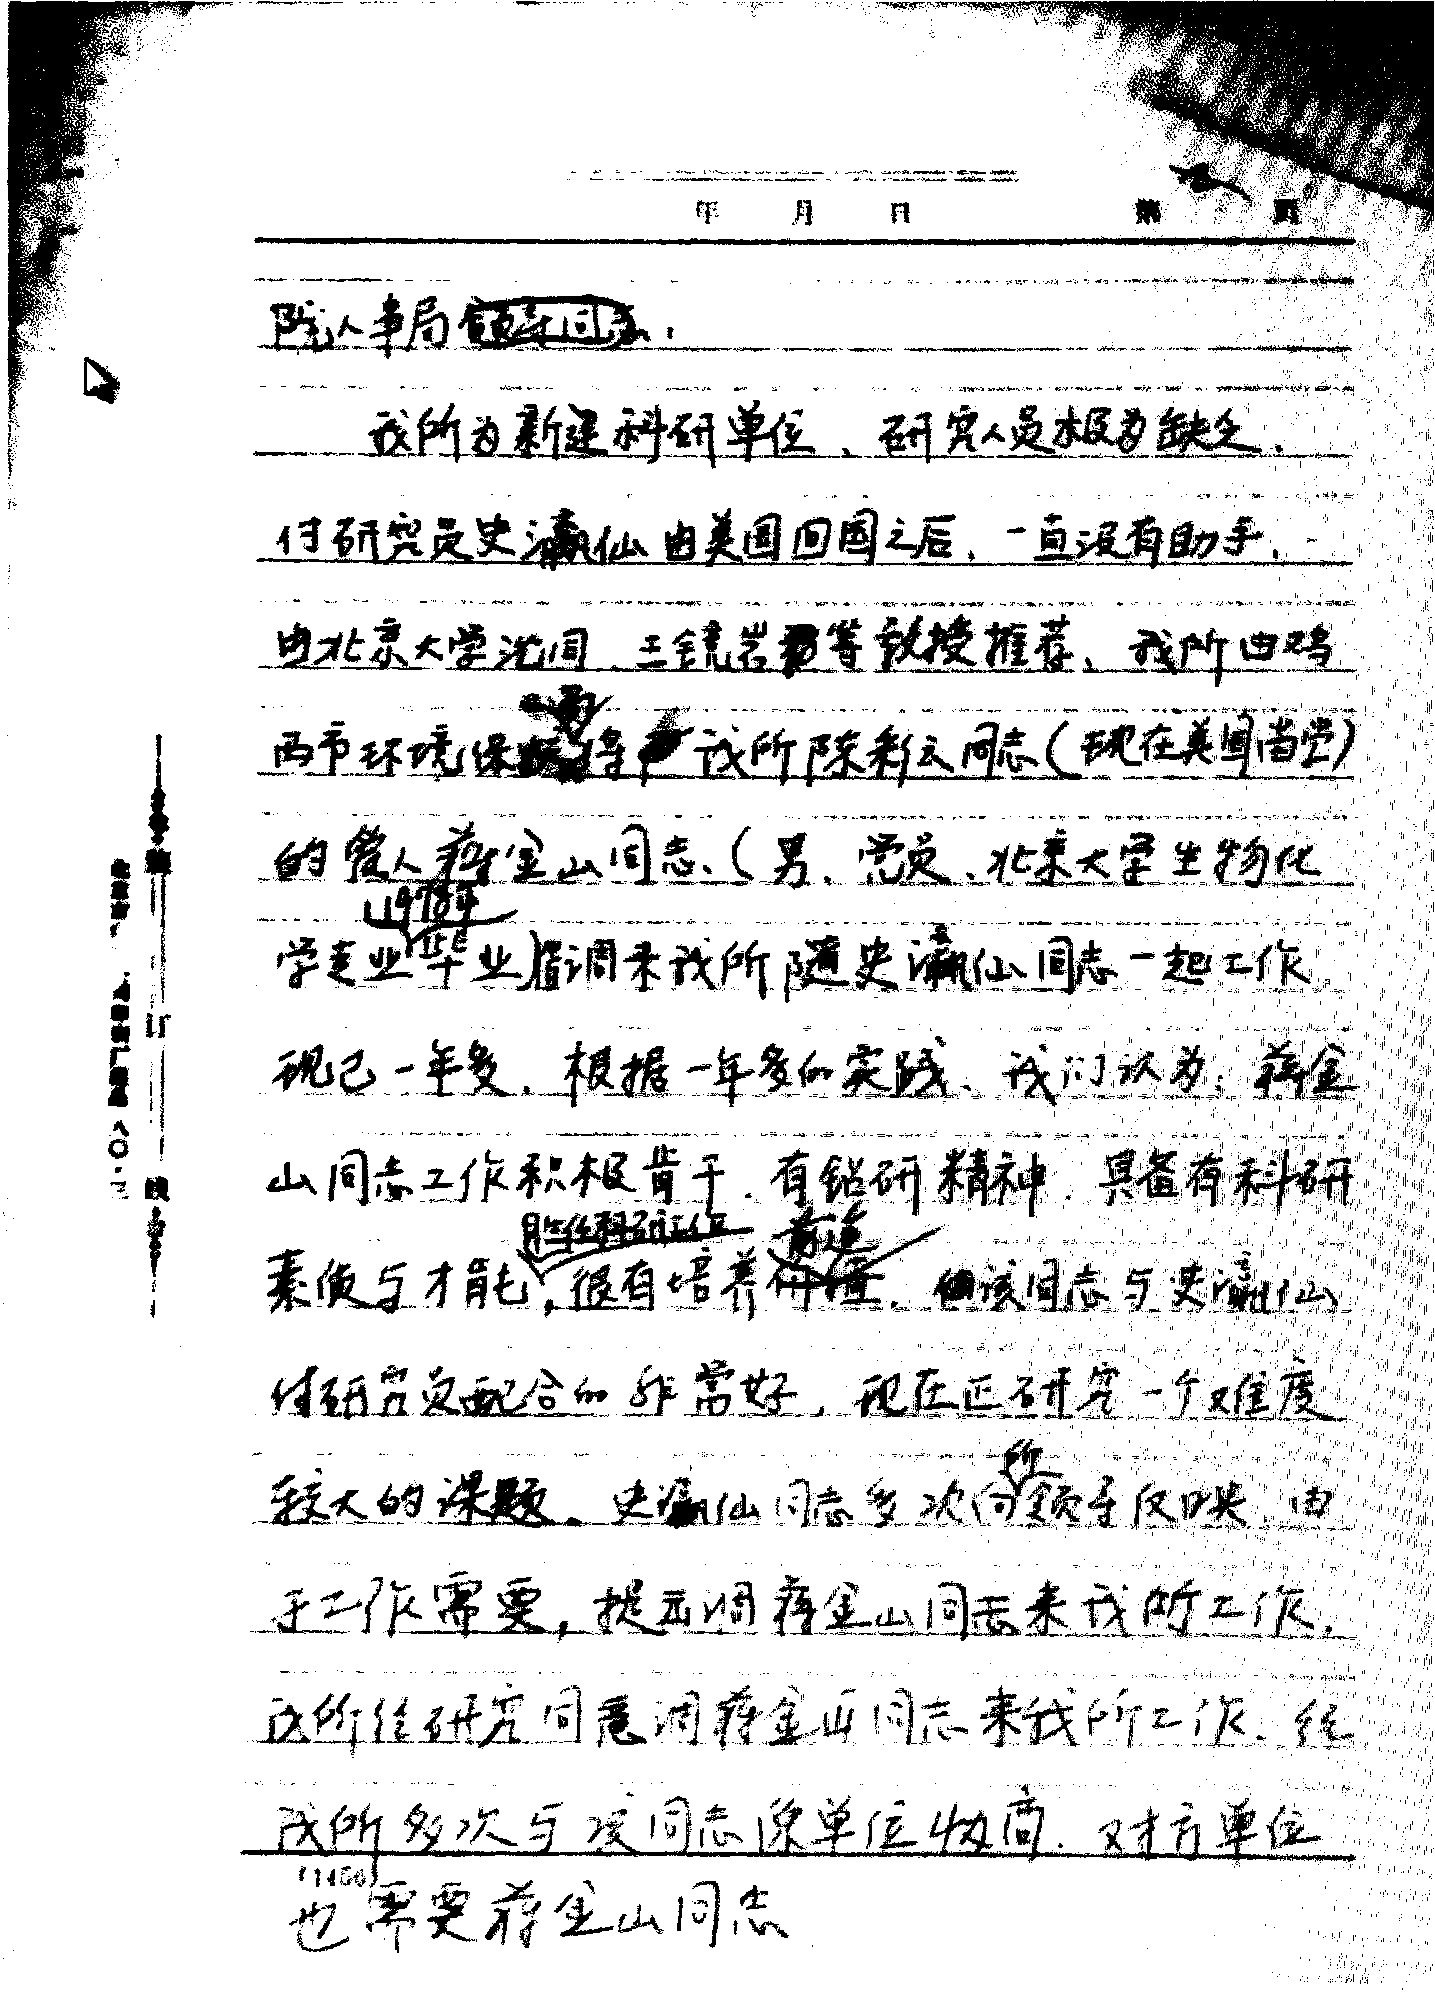 年 月 日 第 页
院人事局领导同志:
我所为新建科研单位、研究人员极为缺乏.
付研究员史瀛仙由美国回国之后、一直没有助手.
由北京大学沈同、王镜岩等教授推荐、我所由鸡
西市环境保 将 我所陈彩云同志(现在美国留学)
的爱人蒋金山同志、(男、党员、北京大学生物化
1978年
学专业毕业)借调来我所随史瀛仙同志一起工作
现已一年多. 根据一年多的实践、我们认为:蒋金
山同志工作积极肯干. 有钻研精神. 具备有科研
胜任科研工作 前途
素质与才能,很有培养 . 该同志与史瀛仙
付研究员配合的非常好. 现在正研究一个难度
所
较大的课题. 史瀛仙同志多次向领导反映. 由
于工作需要,提出调蒋金山同志来我所工作.
我所经研究同意调蒋金山同志来我所工作. 经
我所多次与该同志原单位协商. 对方单位
(1456)
也需要蒋金山同志
装
订
线
八〇·二